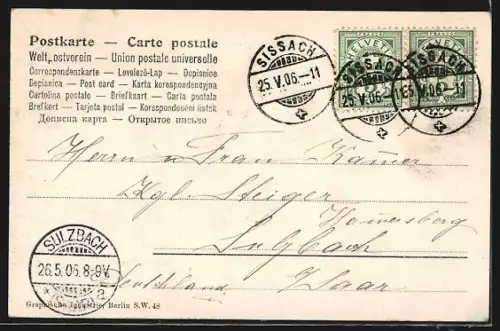 Postkarte - Carte postale
Weltpostverein - Union postale universelle
Correspondenzkarte - Levelező-Lap - Dopisnice
Dopisnica - Post card - Karta korespodencyjna
Cartolina postale - Briefkaart - Carta postala
Brefkort - Tarjeta postal - Korespondenční listek
Дописна карта - Открытое письмо
SISSACH
25.V.06-11
HELVETIA
HELVETIA
SISSACH
25.V.06-11
SISSACH
25.V.06-11
Herrn u Frau
Kgl. Steiger
Sulzbach
Deutschland a/Saar
SULZBACH
26.5.06.8-9V.
Graphische Industrie, Berlin S.W. 48